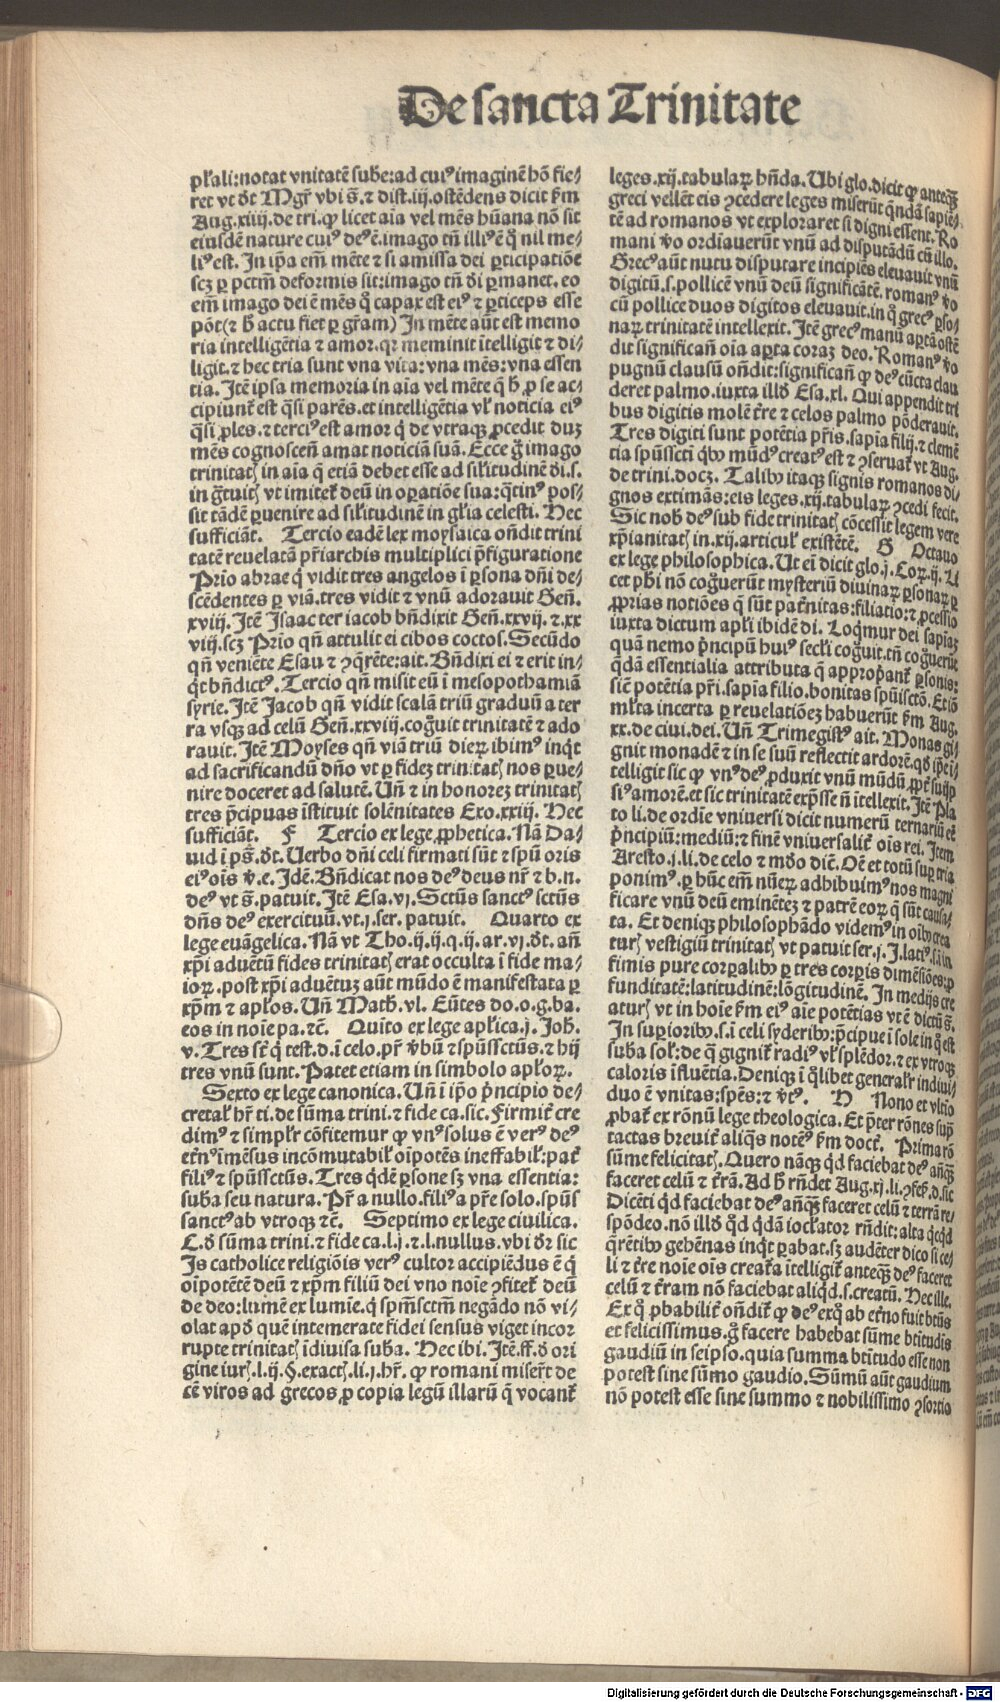 De sancta Trinitate
pl̄ali: notat vnitatē sube: ad cuiꝰ imaginē hō fie⸗
ret vt ðt Mgr̄ vbi s̄. ⁊ dist. iij. ostēdens dicit ẜm
Aug. xiiij. de tri. ꝙ licet aīa vel mēs hūana nō sit
eiusdē nature cuiꝰ deꝰ ē. imago tn̄ illiꝰ ē qͦ nil me⸗
liꝰ est. In ip̄a em̄ mēte ⁊ si amissa dei ꝑticipatiōe
scꝫ ꝑ pctm̄ deformis sit: imago tn̄ ði ꝑmanet. eo
em̄ imago dei ē mēs qͦ capax est eiꝰ ⁊ ꝑticeps esse
pōt (⁊ ħ actu fiet ꝑ gr̄am) In mēte aūt est memo
ria intelligētia ⁊ amor. qꝛ meminit ītelligit ⁊ di⸗
ligit. ⁊ hec tria sunt vna vita: vna mēs: vna essen
tia. Itē ipsa memoria in aīa vel mēte q̄ ħ ꝓ se ac⸗
cipiunt̄ est q̄si parēs. et intelligētia vl̄ noticia eiꝰ
q̄si ꝓles. ⁊ terciꝰ est amor q̇ de vtraqꝫ ꝓcedit duꝫ
mēs cognoscen̄ amat noticiā suā. Ecce g̊ imago
trinitatꝭ in aīa q̄ etiā debet esse ad sil̄itudinē ði. s.
in gr̄tuitꝭ vt imitet̄ deū in oꝑatiōe sua: q̄tinꝰ pos⸗
sit tādē ꝑuenire ad sil̄itudinē in gl̄ia celesti. Hec
sufficiāt. Tercio eadē lex moysaica on̄dit trini
tatē reuelatā pr̄iarchis multiplici p̄figuratione
Prio abrae q̇ vidit tres angelos ī ꝑsona dn̄i de⸗
scēdentes ꝑ viā. tres vidit ⁊ vnū adorauit Gen̄.
xviij. Itē Isaac ter iacob bn̄dixit Gen̄. xxvij. ⁊ xx
viij. scꝫ Prio qn̄ attulit ei cibos coctos. Secūdo
qn̄ veniēte Esau ⁊ ꝯq̄rēte: ait. Bn̄dixi ei ⁊ erit in⸗
q̇t bn̄dictꝰ. Tercio qn̄ misit eū ī mesopothamiā
syrie. Itē Jacob qn̄ vidit scalā triū graduū a ter
ra vsqꝫ ad celū Gen̄. xxviij. cog̊uit trinitatē ⁊ ado
rauit. Itē Moyses qn̄ viā triū dieꝝ ibimꝰ inq̇t
ad sacrificandū dn̄o vt ꝑ fideꝫ trinitatꝭ nos ꝑue⸗
nire doceret ad salutē. Un̄ ⁊ in honoreꝫ trinitatꝭ
tres p̄cipuas īstituit solēnitates Exo. xxiij. Hec
sufficiāt. F Tercio ex lege ꝓphetica. Nā Da⸗
uid ī ps̄. ðt. Uerbo dn̄i celi firmati sūt ⁊ spū oris
eiꝰ oīs v̊. e. Idē. Bn̄dicat nos deꝰ deus nr̄ ⁊ b. n.
deꝰ vt s̄. patuit. Itē Esa. vj. Sctūs sanctꝰ sctūs
dn̄s deꝰ exercituū. vt. j. ser. patuit. Quarto ex
lege euāgelica. Nā vt Tho. ij. ij. q. ij. ar. vj. ðt. an̄
xp̄i aduētū fides trinitatꝭ erat occulta ī fide ma⸗
ioꝝ. post xp̄i aduētuꝫ aūt mūdo ē manifestata ꝑ
xp̄m ⁊ apl̄os. Un̄ Math. vl. Eūtes do. o. g. ba.
eos in noīe pa. ⁊c̄. Quīto ex lege apl̄ica. j. Joh̄.
v. Tres st̄ q̇ test. d. ī celo. pr̄ v̊bū ⁊ spūssctūs. ⁊ hij
tres vnū sunt. Patet etiam in simbolo apl̄oꝝ.
Sexto ex lege canonica. Un̄ ī ip̄o ṗncipio de⸗
cretal̄ hr̄ ti. de sūma trini. ⁊ fide ca. sic. Firmit̄ cre
dimꝰ ⁊ simpl̄r cōfitemur ꝙ vnꝰ solus ē verꝰ deꝰ
et̄nꝰ īmēsus incōmutabil̄ oīpotēs ineffabil̄: pat̄
filiꝰ ⁊ spūssctūs. Tres q̇dē ꝑsone sꝫ vna essentia:
suba seu natura. Pr̄ a nullo. filiꝰ a pr̄e solo. spūs
sanctꝰ ab vtroqꝫ ⁊c̄. Septimo ex lege ciuilica.
C. ð sūma trini. ⁊ fide ca. l. j. ⁊ l. nullus. vbi ðr sic
Is catholice religiōis verꝰ cultor accipiēdus ē q̇
oīpotētē deū ⁊ xp̄m filiū dei vno noīe ꝯfitet̄ deū
de deo: lumē ex lumīe. q̇ spm̄sctm̄ negādo nō vi⸗
olat apð quē intemerate fidei sensus viget incor
rupte trinitatꝭ īdiuisa suba. Hec ibi. Itē. ff. ð ori
gine iurꝭ. l. ij. §. exactꝭ. li. j. hr̄. ꝙ romani miser̄t de
cē viros ad grecos ꝓ copia legū illarū q̄ vocant̄
leges. xij. tabulaꝝ hn̄da. Ubi glo. dicit ꝙ anteqꝫ
greci vellēt eis ꝯcedere leges miserūt q̄ndā sapiē⸗
tē ad romanos vt exploraret si digni essent. Ro
mani v̊o ordīauerūt vnū ad disputādū cū illo.
Grecꝰ aūt nutu disputare incipiēs eleuauit vnū
digitū. s. pollicē vnū deū significātē. romanꝰ v̊o
cū pollice duos digitos eleuauit. in qͦ grecꝰ ꝑso⸗
naꝝ trinitatē intellexit. Itē grecꝰ manū aꝑtā ostē
dit significan̄ oīa aꝑta coraꝫ deo. Romanꝰ v̊o
pugnū clausū on̄dit: significan̄ ꝙ deꝰ cūcta clau
deret palmo. iuxta illð Esa. xl. Qui appendit tri
bus digitis molē t̄re ⁊ celos palmo pōderauit.
Tres digiti sunt potētia pr̄is. sapīa filij. ⁊ clemē
tia spūsscti q̇bꝰ mūdꝰ creatꝰ est ⁊ ꝯseruat̄ vt Aug.
de trini. docꝫ. Talibꝰ itaqꝫ signis romanos di⸗
gnos extimās: eis leges. xij. tabulaꝝ ꝯcedi fecit.
Sic nob̄ deꝰ sub fide trinitatꝭ cōcessit legem vere
xp̄ianitatꝭ in. xij. articul̄ existētē. G Octauo
ex lege philosophica. Ut em̄ dicit glo. j. Coꝝ. ij. Li
cet ph̄i nō cog̊uerūt mysteriū diuinaꝝ ꝑsonaꝝ ꝑ
ꝓprias notiōes q̄ sūt pat̄nitas: filiatio: ⁊ ꝓcessio
iuxta dictum apl̄i ibidē di. Loq̇mur dei sapīaꝫ
quā nemo ṗncipū huiꝰ secl̄i cog̊uit. tn̄ cog̊uerūt
q̄dā essentialia attributa q̄ approṗant̄ ꝑsonis:
sic̄ potētia pr̄i. sapīa filio. bonitas spūiscto. Et iō
ml̄ta incerta ꝑ reuelatiōeꝫ habuerūt ẜm Aug.
xx. de ciui. dei. Un̄ Trimegistꝰ ait. Monas gi⸗
gnit monadē ⁊ in se suū reflectit ardorē. qð ip̄e ī⸗
telligit sic ꝙ vnꝰ deꝰ ꝓduxit vnū mūdū ꝓpt̄ suijp
siꝰ amorē. et sic trinitatē exp̄sse n̄ ītellexit. Itē Pla
to li. de ordīe vniuersi dicit numerū ternariū eē
ṗncipiū: mediū: ⁊ finē vniuersalit̄ oīs rei. Item
Aresto. j. li. de celo ⁊ mðo dic̄. Oē et totū suꝑ tria
ponimꝰ. ꝑ hūc em̄ nūeꝝ adhibuimꝰ nos magni
ficare vnū deū eminēteꝫ ⁊ patrē eoꝝ q̄ sūt causa⸗
ta. Et deniqꝫ philosophādo videmꝰ in oībꝰ crea
turꝭ vestigiū trinitatꝭ vt patuit ser. j. J. latiꝰ. s. ī in
fimis pure corꝑalibꝰ ꝑ tres corꝑis dimēsiōes: ꝓ
funditatē: latitudinē: lōgitudinē. In medijs cre
aturꝭ vt in hoīe ẜm eiꝰ aīe potētias vt ē dictū s̄.
In suꝑioribꝰ. s. ī celi syderibꝰ: p̄cipue ī sole in qͦ est
suba sol̄: de q̄ gignit̄ radiꝰ vl̄ splēdor. ⁊ ex vtroqꝫ
caloris īfluētia. Deniqꝫ ī qͦlibet generalr̄ indiui⸗
duo ē vnitas: spēs: ⁊ v̊tꝰ. H Nono et vltīo
ꝓbat̄ ex rōnū lege theologica. Et p̄ter rōnes sup̄
tactas breuit̄ aliq̄s notēꝰ ẜm doct̄. Prima rō
sūme felicitatꝭ. Quero nāqꝫ q̇d faciebat deꝰ anq̄ꝫ
faceret celū ⁊ t̄rā. Ad ħ rn̄det Aug. xj. li. ꝯfess̄. d. sic
Dicēti q̇d faciebat deꝰ anq̄ꝫ faceret celū ⁊ terrā re
spōdeo. nō illð qð q̇dā iocl̄ator rn̄dit: alta qͦqð
q̄rētibꝰ gehēnas inq̇t ꝑabat. sꝫ audēter dico si ce⸗
li ⁊ t̄re noīe oīs creat̄a ītelligit̄ anteqꝫ deꝰ faceret
celū ⁊ t̄ram nō faciebat aliq̇d. s. creatū. Hec ille.
Ex qͦ ꝓbabilit̄ on̄dit̄ ꝙ deꝰ exqͦ ab et̄no fuit btūs
et felicissimus. g̊ facere habebat sūme btītudis
gaudiū in seipso. quia summa btītudo esse non
potest sine sūmo gaudio. Sūmū aūt gaudium
nō potest esse sine summo ⁊ nobilissimo ꝯsortio
Digitalisierung gefördert durch die Deutsche Forschungsgemeinschaft - DFG